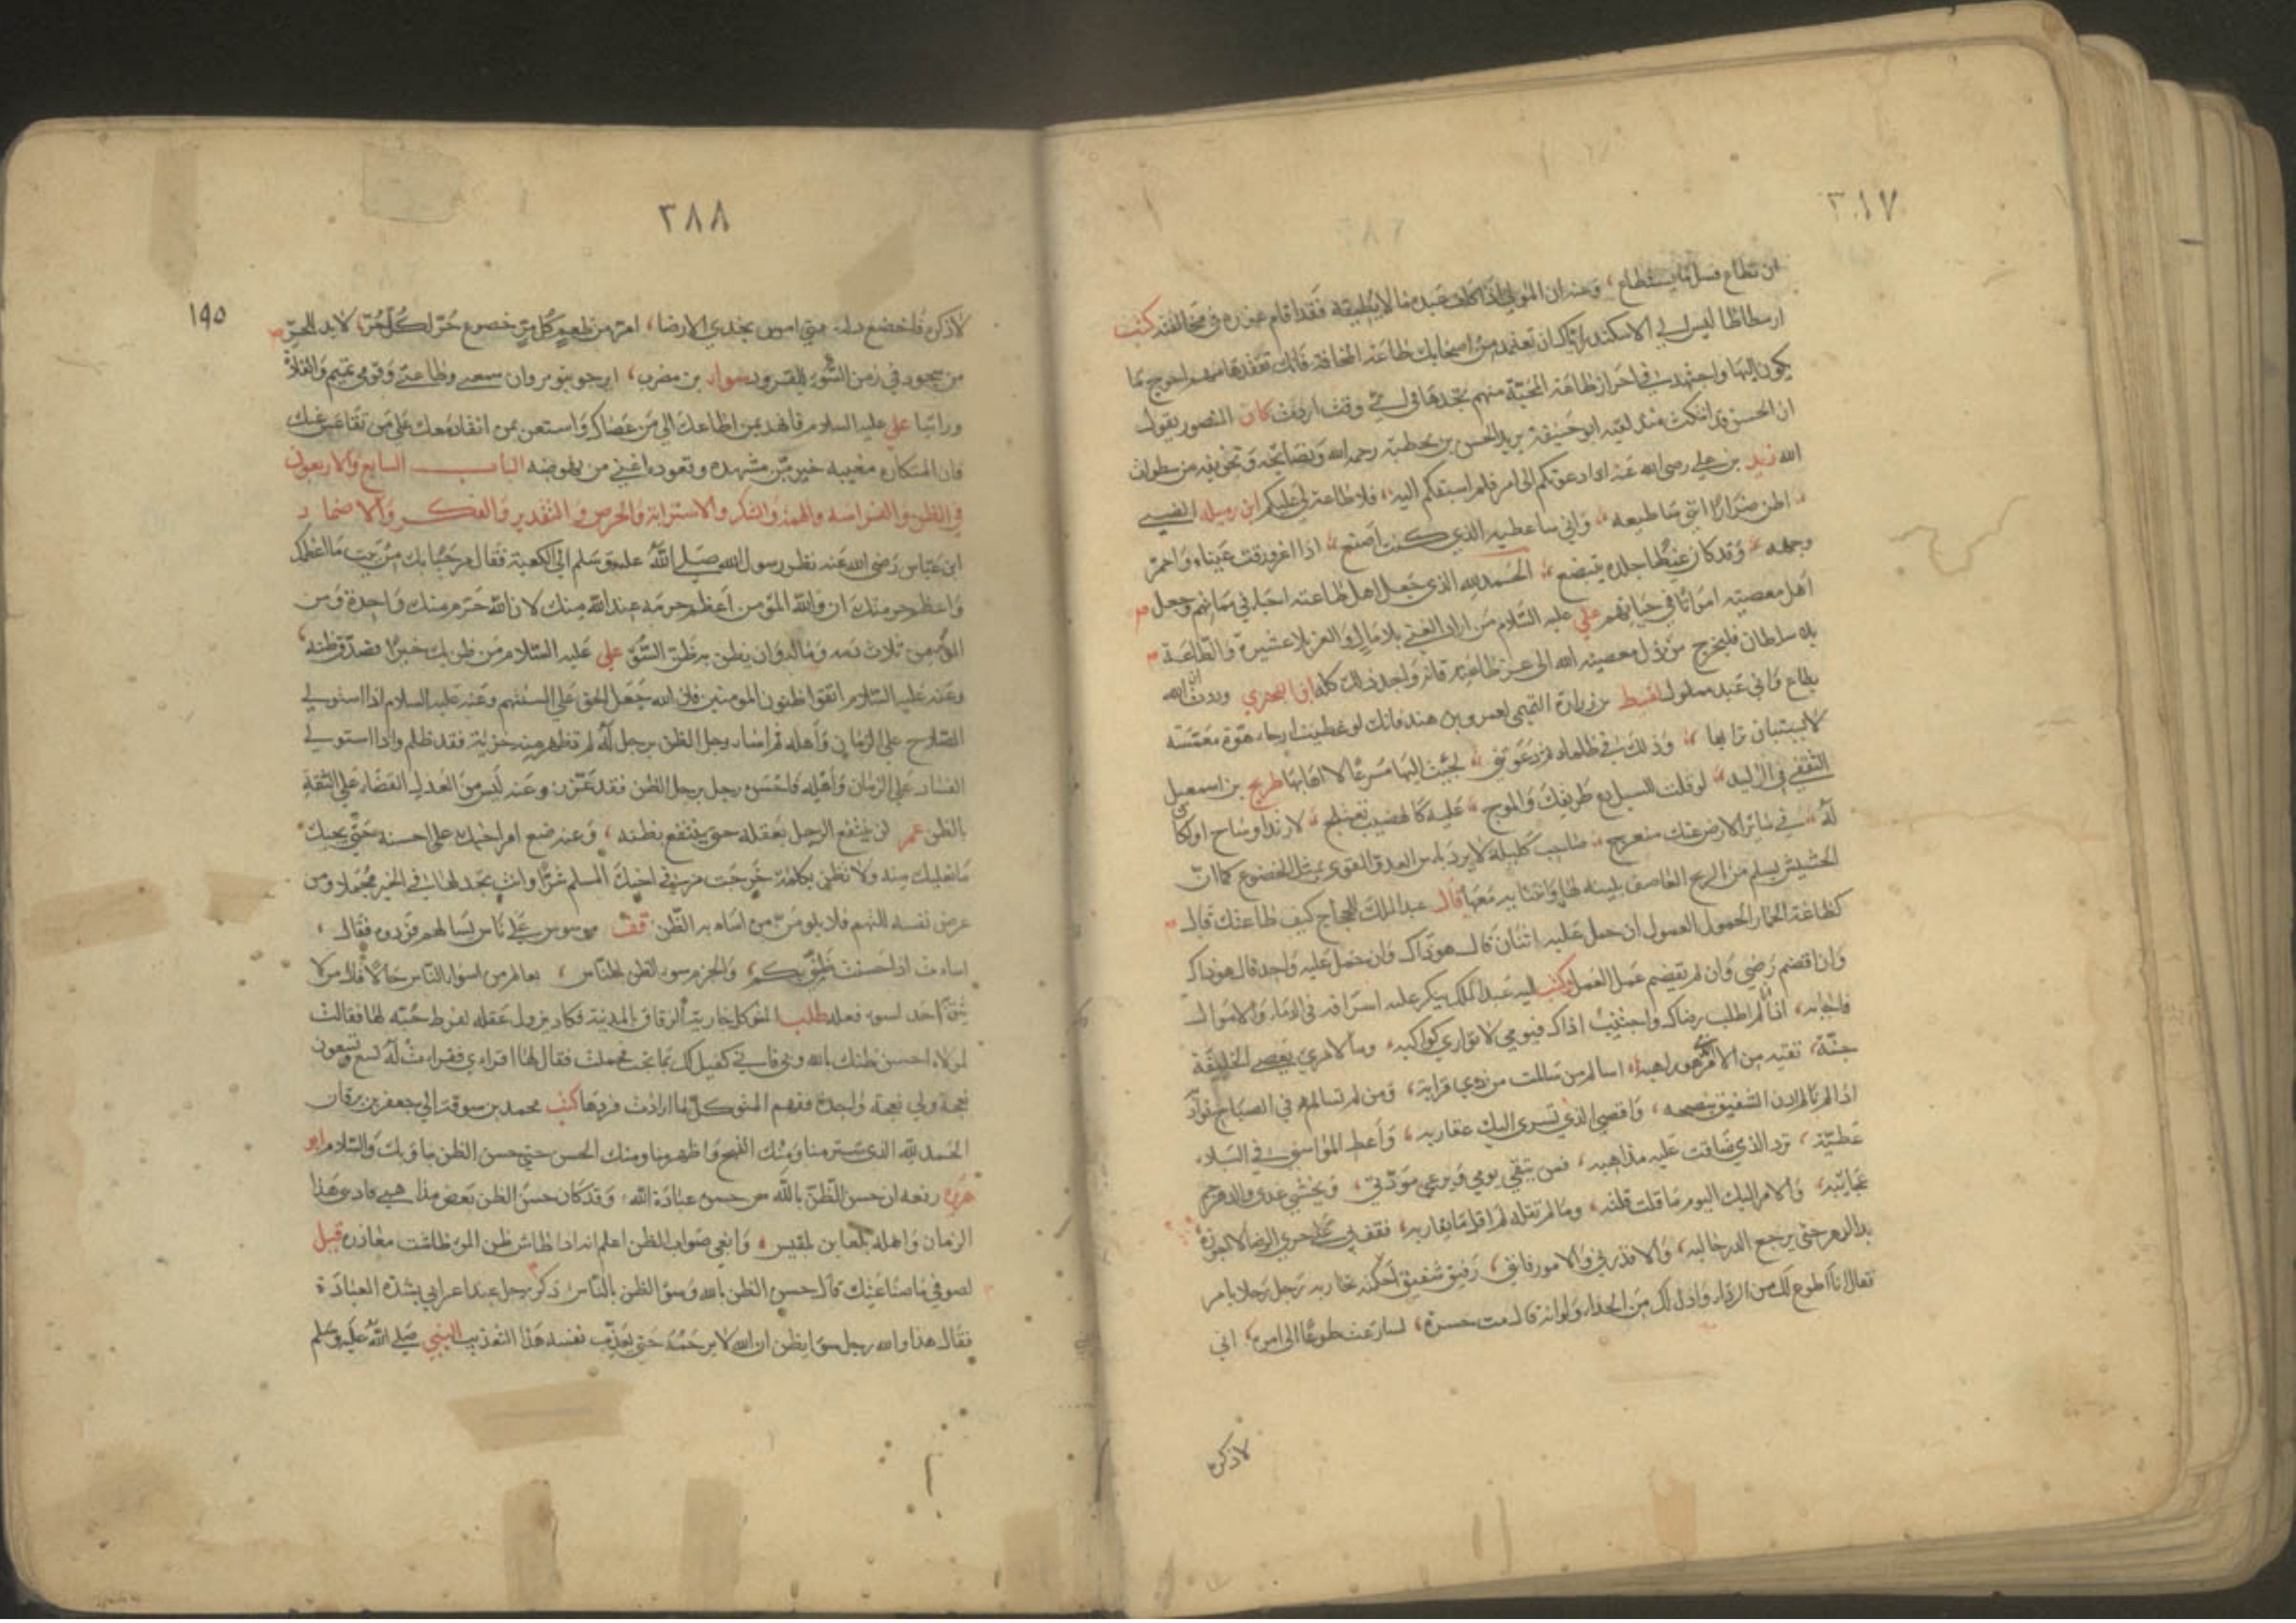 ٣٨٧
ان تطاع فسل ما يستطاع، وعنه ان المولى اذا كلف عبده ما لا يطيقه فقد اقام عذره في مخالفته كتب
ارسطاطاليس الى الاسكندر اياك ان تعتمد من اصحابك طاعة المخافة فانك تفقدها منهم احوج ما
يكون اليها واجتهد في احراز طاعة المحبة منهم تجدها في اي وقت اردت كان المنصور يقول
ان الحسن قد انتكث منذ لقيه ابو حنيفة يريد الحسن بن قحطبة رحمه الله ونصائحه وتخويفه من سطوات
الله زيد بن علي رضي الله عنه اذا دعوتكم الى امر فلم اسبقكم اليه، فلا طاعة لي عليكم ابن رميلة الضبي
اظن ضرارا انني ساطيعه، واني ساعطيه الذي كنت اصنع، اذا اغرورقت عيناه واحمر
وجهه، وقد كان غيظا جلده يتبضع، الحمد لله الذي جعل اهل طاعته احياء في مماتهم وجعل
اهل معصيته امواتا في حياتهم علي عليه السلام من اراد الغنى بلا مال والعز بلا عشيرة والطاعة
بلا سلطان فليخرج من ذل معصية الله الى عز طاعته فانه واجد ذلك كله ابن البحتري وددت انه
يطاع واني عبد مملوك لقيط بن زرارة التميمي لعمرو بن هند فانك لو غطيت ارجاء هوة مغمسة
لا يستبان ترابها، وذلك في ظلماء ثم دعوتني، لجئت اليها مسرعا لا اهابها طريح بن اسمعيل
الثقفي في الوليد، لو قلت للسيل دع طريقك والموج، عليه كالهضب يعتلج، لارتد او ساخ او لكان
له، في سائر الارض عنك منعرج، صاحب كليلة لا يرد باس العدو القوي بمثل الخضوع كما ان
الحشيش يسلم من الريح العاصف بلينه لها وانثنائه معها قال عبد الملك للحجاج كيف طاعتك قال
كطاعة الحمار الحمول العمول ان حمل عليه اثنان قال هو ذاك وان حمل عليه واحد قال هو ذاك
وان اقضم رضي وان لم يقضم عمل العمل وكتب اليه عبد الملك ينكر عليه اسرافه في الدماء والاموال
فاجابه، اذا انا لم اطلب رضاك واجتنب اذاك فيومي لا توارى كواكبه، وما لامرئ يعصي الخليفة
جنة، تقيه من الامر الذي هو راهبه، اسالم من سالمت من ذي قرابة، ومن لم تسالمه فاني محاربه
اذا لم ادن الشفيق بنصحه، واقصي الذي تسري اليك عقاربه، واعط المواسي في البلاء
عطية، ترد الذي ضاقت عليه مذاهبه، فمن يتقي يومي ويرعى مودتي، ويخشى غدي والدهر جم
عجائبه، والامر اليك اليوم ما قلت قلته، وما لم تقله لم اقل ما يقاربه، فقف بي على حد الرضا لا اجوزه
بدا الدهر حتى يرجع الدر حالبه، والا فذرني والامور فانني، رفيق شفيق احكمته تجاربه رجل رجلا بامر
فقال انا اطوع لك من الرداء واذل لك من الحذاء ولو انه قال مت حسرة، لسارعت طوعا الى امره، اني
لاذكره
٣٨٨
١٩٥
لاذكره فاخضع له من ظلم كل خضوع حر لكل حر، لا بد للحر
من سجود في زمن السوء للقرود سوار بن مضرب، ايرجو بنو مروان سمعي وطاعتي وقومي تميم والفلاة
ورائيا علي عليه السلام فانهد بمن اطاعك الى من عصاك واستعن بمن انقاد معك على من تقاعس عنك
فان المتكاره مغيبه خير من مشهده وقعوده اغنى من نهوضه الباب السابع والاربعون
في الظن والفراسة والتهمة والشك والاسترابة والحرص والتقدير والفكر والاضمار
ابن عباس رضي الله عنه نظر رسول الله صلى الله عليه وسلم الى الكعبة فقال مرحبا بك من بيت ما اعظمك
واعظم حرمتك ان والله المؤمن اعظم حرمة عند الله منك لان الله حرم منك واحدة ومن
المؤمن ثلاث دمه وماله وان يظن به ظن السوء علي عليه السلام من ظن بك خيرا فصدق ظنه
وعنه عليه السلام اتقوا ظنون المومنين فان الله جعل الحق على السنتهم وعنه عليه السلام اذا استولى
الصلاح على الزمان واهله ثم اساء رجل الظن برجل لم تظهر منه خزية فقد ظلم واذا استولى
الفساد على الزمان واهله فاحسن رجل برجل الظن فقد غرر وعنه ليس من العدل القضاء على الثقة
بالظن عمر لن ينتفع الرجل بعقله حتى ينتفع بظنه، وعنه ضع امر اخيك على احسنه حتى يجيك
ما يغلبك منه ولا تظن بكلمة خرجت من في اخيك المسلم شرا وانت تجد لها في الخير محملا ومن
عرض نفسه للتهم فلا يلومن من اساء به الظن وقف موسوس على ناس يسالهم فردوه فقال
اسات اذ احسنت ظني بكم، والحزم سوء الظن بالناس، بعالم من اسوا الناس حالا قال من لا
يثق احد لسوء فعله طلب المتوكل جارية الزقاق بالمدينة فكاد يزول عقله لفرط حبه لها فقالت
لمولاها احسن ظنك بالله وبي فاني كفيل لك بما تحب فحملت فقال لها اقراي فقرات له تسع وتسعون
نعجة ولي نعجة واحدة ففهم المتوكل ما ارادت فردها كتب محمد بن سوقة الى جعفر بن برقان
الحمد لله الذي ستر منا ومنك القبيح واظهر منا ومنك الحسن حتى حسن الظن بنا وبك والسلام ابو
هريرة رفعه ان حسن الظن بالله من حسن عبادة الله وقد كان حسن الظن بعض مذاهبي فادبني هذا
الزمان واهله بلعا بن لمقيس، وابغي صواب الظن اعلم انه اذا طاش ظن المرء طاشت مقادره قيل
لصوفي ما صناعتك قال حسن الظن بالله وسوء الظن بالناس ذكر رجل عند اعرابي بشدة العبادة
فقال هذا والله رجل سوء ايظن ان الله لا يرحمه حتى يعذب نفسه هذا التعذيب النبي صلى الله عليه وسلم